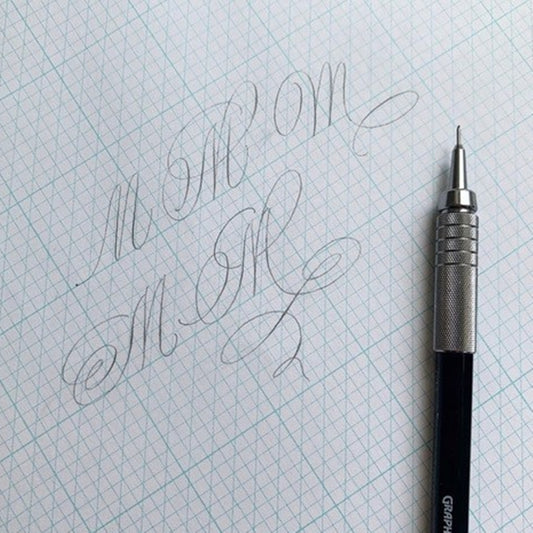 M M M
M M
GRAPH